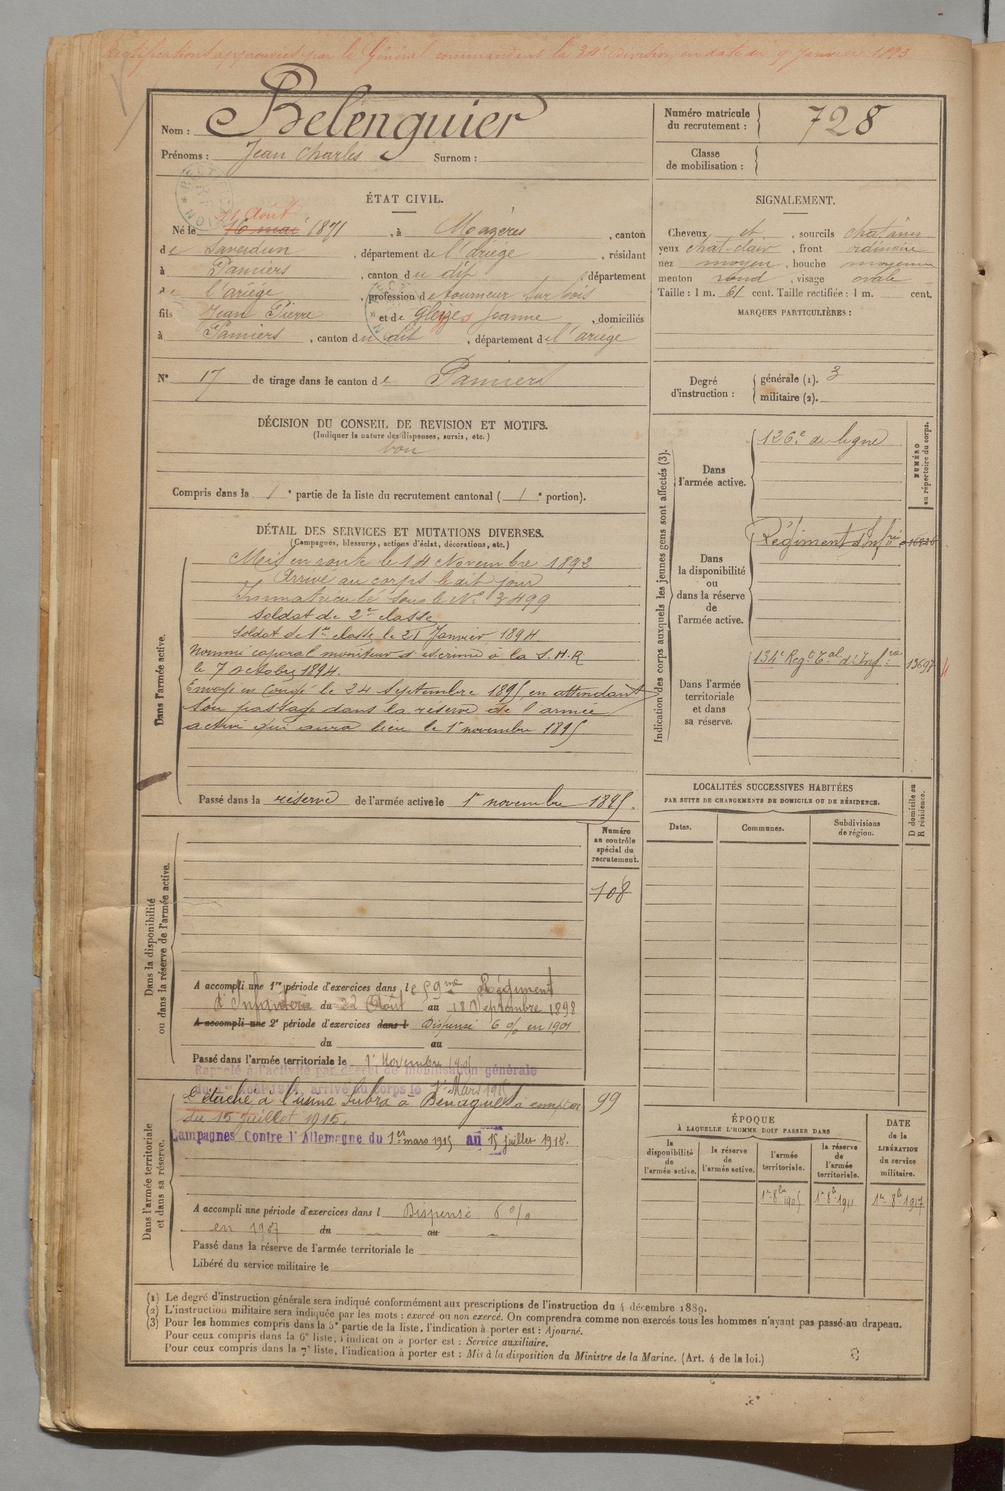 Rectifications approuvées par le Général commandant la 34e Division, en date du 9 Janvier 1893
Nom : Belenguier
Prénoms : Jean Charles Surnom :
Numéro matricule du recrutement : 728
Classe de mobilisation :
ÉTAT CIVIL.
21 Août
Né le 16 mai 1871, à Mazères, canton
de Saverdun, département de l'ariége, résidant
à Pamiers, canton du dit, département
de l'ariége, profession de tourneur sur bois
fils Jean Pierre et de Gleyzes Jeanne, domiciliés
à Pamiers, canton du dit, département de l'ariége
N° 17 de tirage dans le canton de Pamiers
SIGNALEMENT.
Cheveux et, sourcils chatains
yeux chat-clair, front ordinaire
nez moyen, bouche moyenne
menton rond, visage ovale
Taille : 1 m. 61 cent. Taille rectifiée : 1 m. cent.
MARQUES PARTICULIÈRES :
Degré d'instruction : générale (1). 3
militaire (2).
DÉCISION DU CONSEIL DE REVISION ET MOTIFS.
(Indiquer la nature des dispenses, sursis, etc.)
bon
Compris dans la 1e partie de la liste du recrutement cantonal (1e portion).
DÉTAIL DES SERVICES ET MUTATIONS DIVERSES.
(Campagnes, blessures, actions d'éclat, décorations, etc.)
Dans l'armée active.
Mis en route le 14 Novembre 1892
Arrivé au corps le dit jour
Immatriculé sous le N° 3499
Soldat de 2e classe
Soldat de 1re classe le 21 Janvier 1894
Nommé caporal moniteur d'escrime à la S.H.R
le 7 octobre 1894.
Envoyé en Congé le 24 septembre 1895 en attendant
son passage dans la réserve de l'armée
active qui aura lieu le 1er novembre 1895
Passé dans la réserve de l'armée active le 1er novembre 1895.
Indication des corps auxquels les jeunes gens sont affectés (3).
NUMÉRO au répertoire du corps.
Dans l'armée active.
126e de ligne
Dans la disponibilité ou dans la réserve de l'armée active.
Régiment d'Infrie
Dans l'armée territoriale et dans sa réserve.
134e Regt Tal d'Infie 13697
LOCALITÉS SUCCESSIVES HABITÉES
PAR SUITE DE CHANGEMENTS DE DOMICILE OU DE RÉSIDENCE.
Dates. Communes. Subdivisions de région. D domicile ou R résidence.
Dans la disponibilité ou dans la réserve de l'armée active.
Numéro au contrôle spécial du recrutement.
108
A accompli une 1re période d'exercices dans le 59me Régiment
d'Infanterie du 22 Août au 18 Septembre 1898
A accompli une 2e période d'exercices dans l Dispensé 6 % en 1901
du au
Passé dans l'armée territoriale le 1er Novembre 1905
Rappelé à l'activité par décret de mobilisation générale
du 1er Août 1914, arrivé au corps le 1er Mars 1915
Dans l'armée territoriale et dans sa réserve.
Détaché à l'usine Subra à Bénagues à compter 99
du 15 Juillet 1915.
Campagnes Contre l'Allemagne du 1er mars 1915 au 15 juillet 1915.
A accompli une période d'exercices dans l Dispensé 6 %
en 1907 du au
Passé dans la réserve de l'armée territoriale le
Libéré du service militaire le
ÉPOQUE
À LAQUELLE L'HOMME DOIT PASSER DANS
la disponibilité de l'armée active. la réserve de l'armée active. l'armée territoriale. la réserve de l'armée territoriale. DATE de la LIBÉRATION du service militaire.
1er 8bre 1905 1er 8bre 1911 1er 8bre 1917
(1) Le degré d'instruction générale sera indiqué conformément aux prescriptions de l'instruction du 4 décembre 1889.
(2) L'instruction militaire sera indiquée par les mots : exercé ou non exercé. On comprendra comme non exercés tous les hommes n'ayant pas passé au drapeau.
(3) Pour les hommes compris dans la 5e partie de la liste, l'indication à porter est : Ajourné.
Pour ceux compris dans la 6e liste, l'indication à porter est : Service auxiliaire.
Pour ceux compris dans la 7e liste, l'indication à porter est : Mis à la disposition du Ministre de la Marine. (Art. 4 de la loi.)